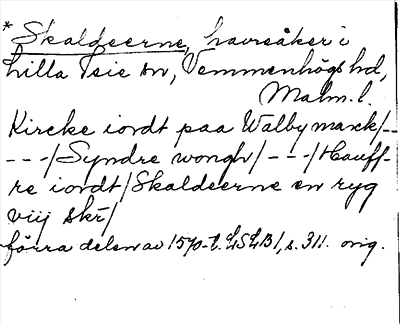 * Skaldeerne, havreåker i
Lilla Isie sn, Vemmenhögs hd,
Malm. l.
Kircke iordt paa Walby marck/--
---/Syndre wongh/---/Hauff-
re iordt/Skaldeerne en ryg
viij skr/
förra delen av 1570-t. LSLB1, s. 311. orig.